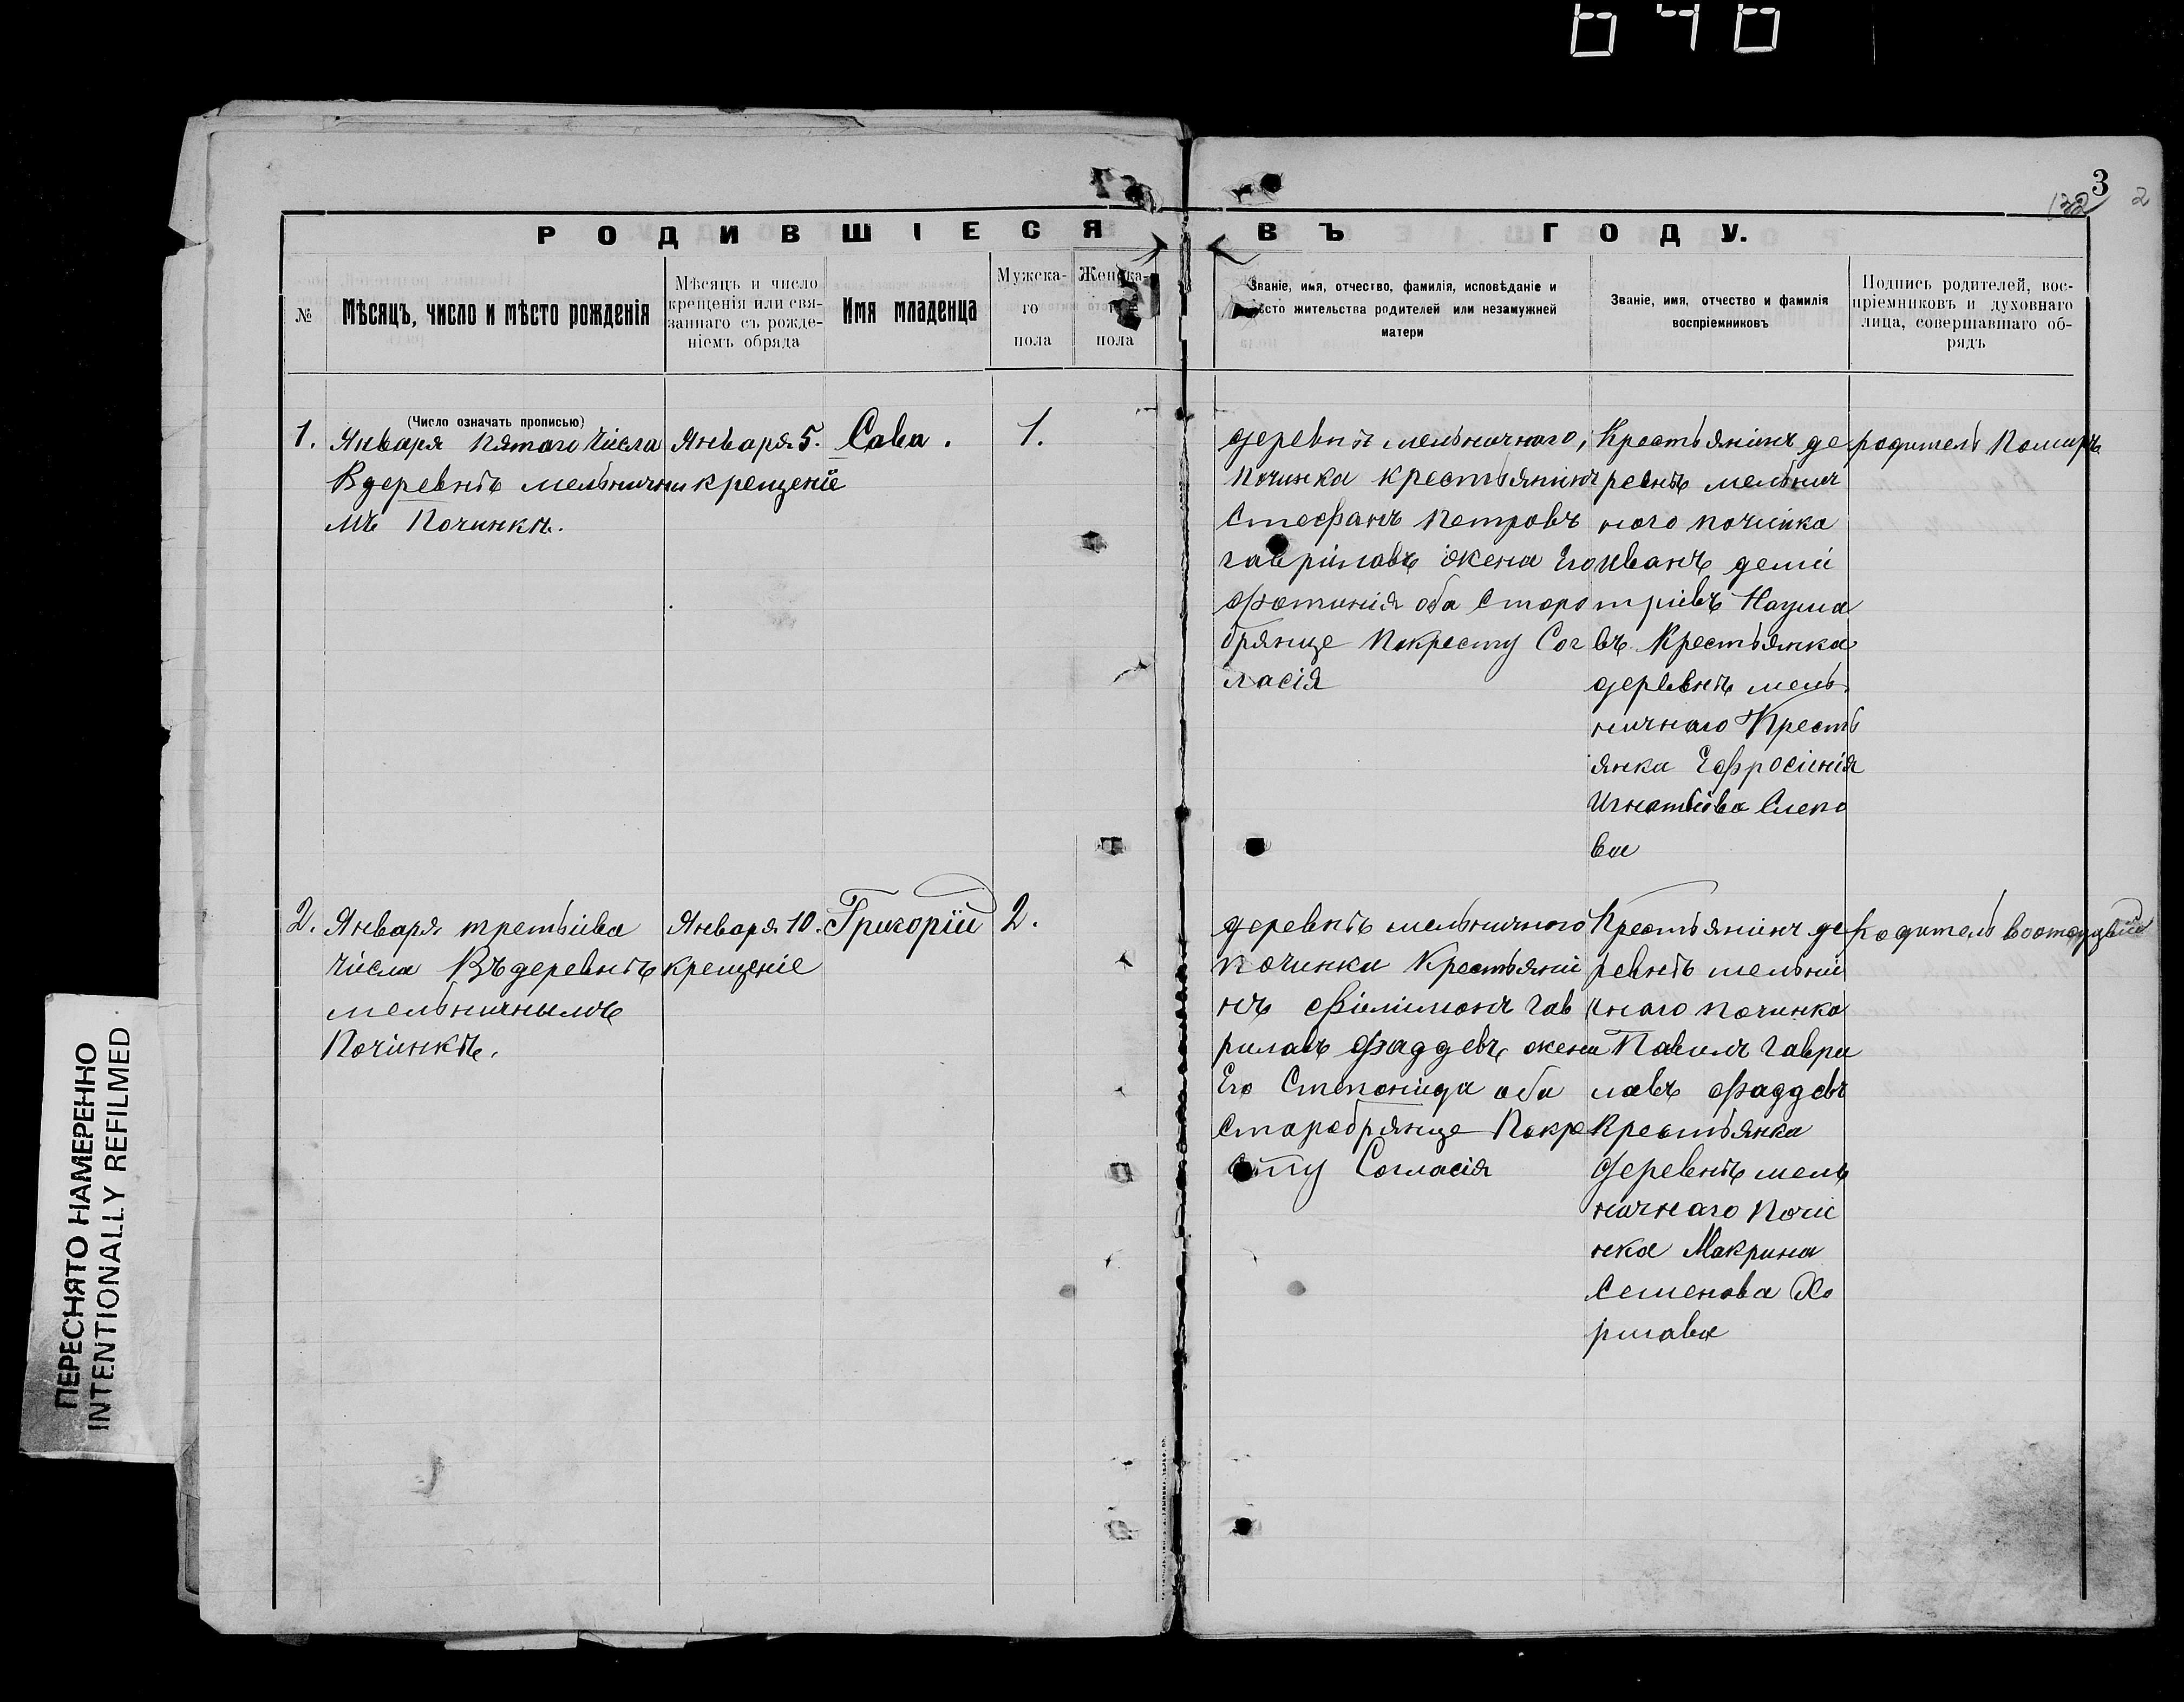 646
3
132 2
РОДИВШІЕСЯ ВЪ ГОДУ.
№
Мѣсяцъ, число и мѣсто рожденія
Мѣсяцъ и число
крещенія или свя-
заннаго съ рожде-
ніемъ обряда
Имя младенца
Мужска-
го
пола
Женска-
пола
Званіе, имя, отчество, фамилія, исповѣданіе и
мѣсто жительства родителей или незамужней
матери
Званіе, имя, отчество и фамилія
воспріемниковъ
Подпись родителей, вос-
пріемниковъ и духовнаго
лица, совершавшаго об-
рядъ
(Число означать прописью)
1. Января пятаго числа
В деревнѣ мельнични
мъ Починкѣ.
Января 5.
крещеніе
Сава.
1.
деревнѣ мельничнаго,
починка крестьянинъ
Стефанъ Петровъ
гаврілавъ жена Его
фотинія оба Старо
брянце Покресту Сог
ласія
Крестьянінъ де
ревнѣ мельнич
ного починка
Иванъ деми
тріевъ Наума
въ Крестьянка
деревнѣ мель
ничнаго Кресть
янка Ефросінія
Игнатьіова Слепо
ва
родитель Помиръ
2. Января третьіва
числа Въ деревнѣ
мельничнымъ
Починкѣ.
Января 10.
крещеніе
Григорій
2.
деревнѣ мельничного
починка Крестьяни
нъ Філимонъ Гав
рилавъ Фаддевъ жена
Его Степонида оба
Старобрянце Покре
сту Согласія
Крестьянинъ де
ревнѣ мельни
чнаго починка
Павилъ Гаври
лавъ Фаддевъ
Крестьянка
Деревнѣ мель
ничнаго Почи
нка Макрина
Семенова Хо
ршава
Родитель
ПЕРЕСНЯТО НАМЕРЕННО
INTENTIONALLY REFILMED